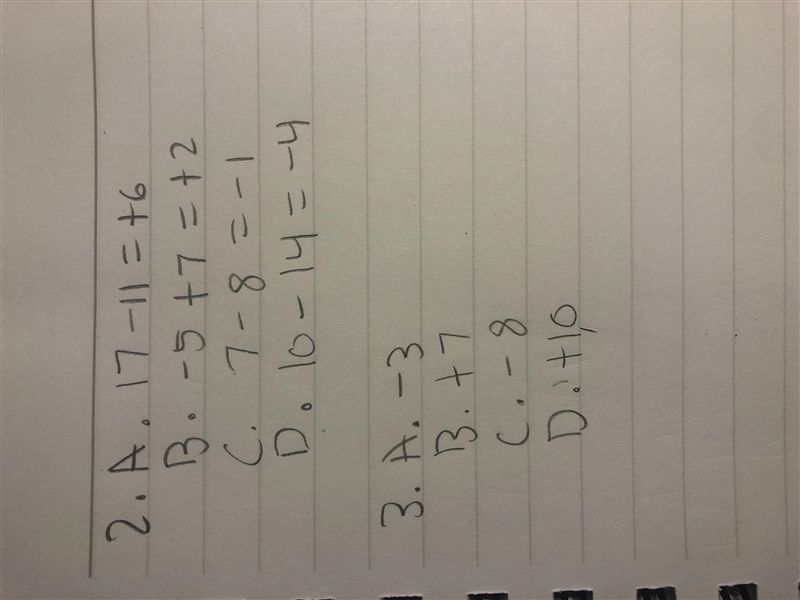 2. A. 17-11=+6
B. -5+7=+2
C. 7-8=-1
D. 10-14=-4
3. A. -3
B. +7
C. -8
D. +10